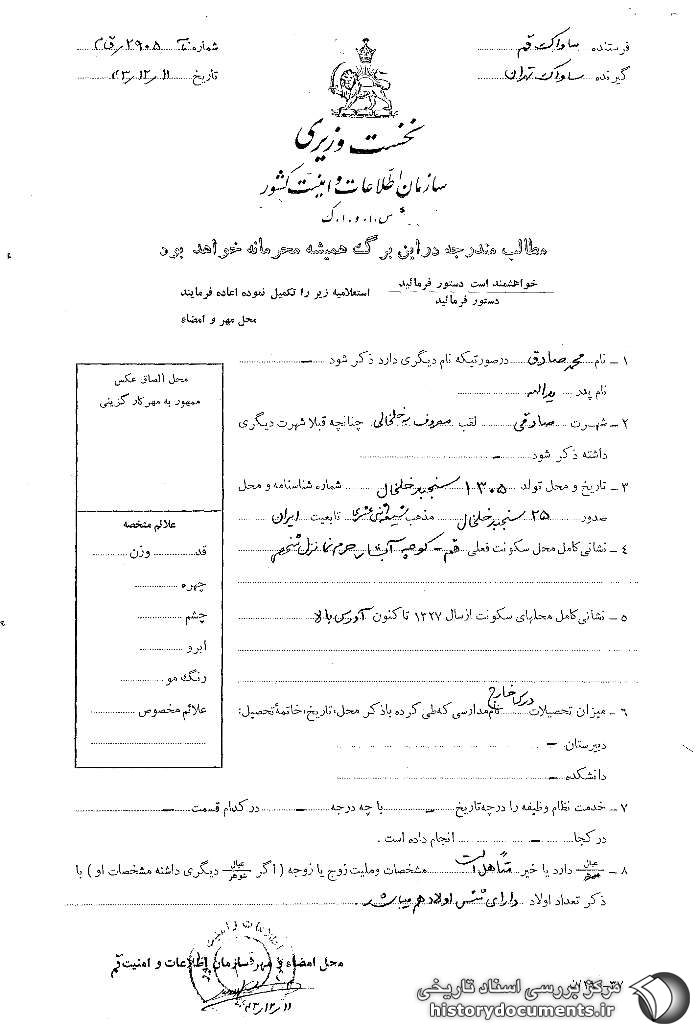 فرستنده ساواک قم
شماره ۲۹۰۵/ق‌ام
گیرنده ساواک تهران
تاریخ ۴۳/۱۲/۱۱
نخست وزیری
سازمان اطلاعات و امنیت کشور
س.ا.و.ا.ک
مطالب مندرجه در این برگ همیشه محرمانه خواهد بود
خواهشمند است دستور فرمائید
دستور فرمائید
استعلامیه زیر را تکمیل نموده اعاده فرمایند
محل مهر و امضاء
۱ - نام محمد صادق در صورتیکه نام دیگری دارد ذکر شود -
نام پدر یداله
۲ - شهرت صادقی لقب معروف به خلخالی چنانچه قبلا شهرت دیگری
داشته ذکر شود -
۳ - تاریخ و محل تولد ۱۳۰۵ سنجبد خلخال شماره شناسنامه و محل
صدور ۲۵ سنجبد خلخال مذهب شیعه اثنی عشری تابعیت ایران
۴ - نشانی کامل محل سکونت فعلی قم - کوچه آبشار حرم نما نزل شخصی
۵ - نشانی کامل محلهای سکونت از سال ۱۳۲۷ تا کنون آدرس بالا
۶ - میزان تحصیلات درس خارج نام مدارسی که طی کرده با ذکر محل، تاریخ، خاتمهٔ تحصیل:
دبیرستان -
دانشکده -
۷ - خدمت نظام وظیفه را در چه تاریخ - با چه درجه - در کدام قسمت -
در کجا - انجام داده است.
۸ - عیال شوهر دارد یا خیر متأهل است مشخصات و ملیت زوج یا زوجه (اگر عیال شوهر دیگری داشته مشخصات او) با
ذکر تعداد اولاد دارای شش اولاد هم میباشد.
محل امضاء و مهر سازمان اطلاعات و امنیت قم
۴۳/۱۲/۱۱
محل الصاق عکس
ممهور به مهر کارگزینی
علائم مشخصه
قد وزن
چهره
چشم
ابرو
رنگ مو
علائم مخصوص
مرکز بررسی اسناد تاریخی
historydocuments.ir